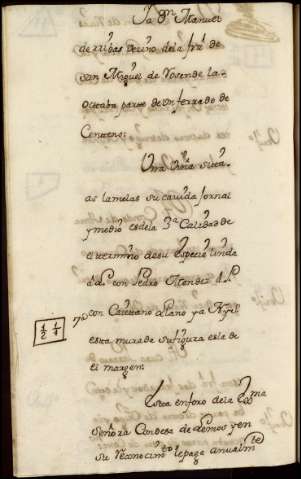 Ya Dn. Manuel
de rribas vecino de la frã de
san Miguel de Vosende la
octaba parte de un ferrado de
Centeno:
Una Viña sita
as lamelas su cavida Jornal
y medio es de la 3ª Calidad de
el termino de su especie linda
con Pedro Mendez
con Caietano alano ya
esta murada su figura es la de
el margen:
1/2 1/1
Esta en foro de la
señora Condesa de Lemos y en
su rreconocimto. se paga anualmte.